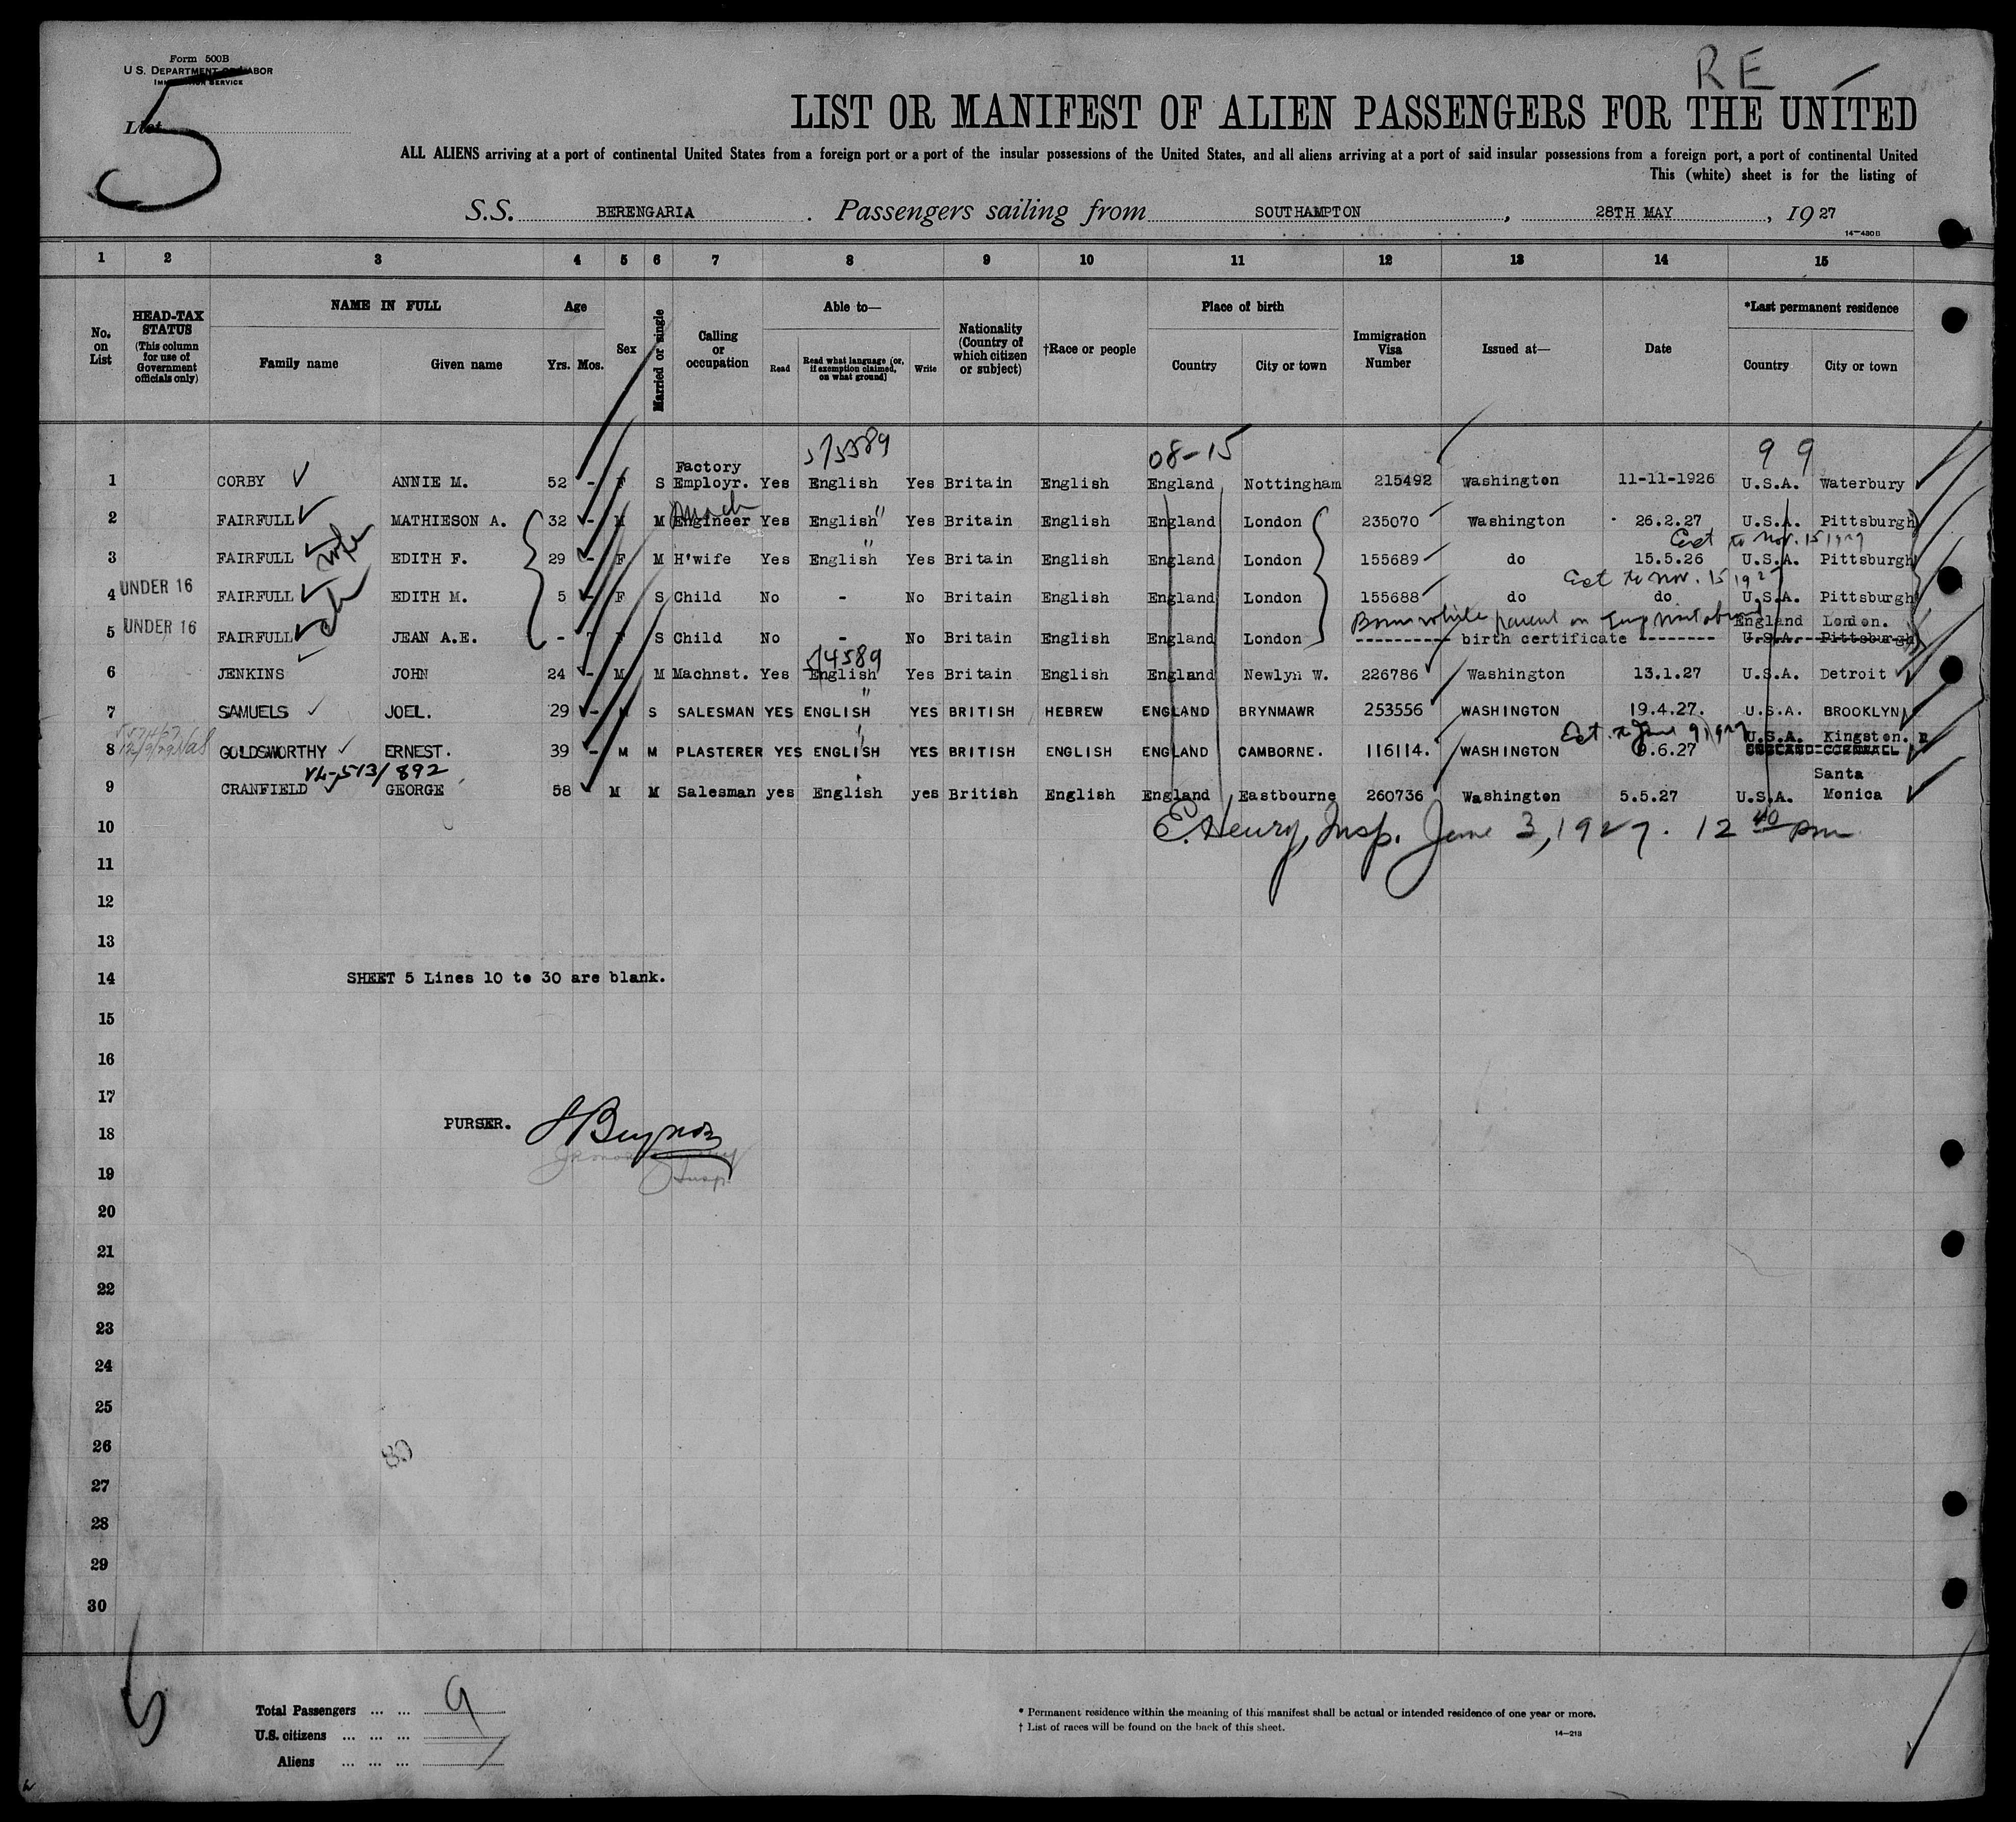 Form 500B
U.S. DEPARTMENT OF LABOR
IMMIGRATION SERVICE
RE
List 5
LIST OR MANIFEST OF ALIEN PASSENGERS FOR THE UNITED
ALL ALIENS arriving at a port of continental United States from a foreign port or a port of the insular possessions of the United States, and all aliens arriving at a port of said insular possessions from a foreign port, a port of continental United
This (white) sheet is for the listing of
S.S. BERENGARIA. Passengers sailing from SOUTHAMPTON, 28TH MAY, 1927
14-480B
1 2 3 4 5 6 7 8 9 10 11 12 13 14 15
No. on List
HEAD-TAX STATUS (This column for use of Government officials only)
NAME IN FULL
Family name Given name
Age
Yrs. Mos.
Sex
Married or single
Calling or occupation
Able to—
Read Read what language (or, if exemption claimed, on what ground) Write
Nationality (Country of which citizen or subject)
†Race or people
Place of birth
Country City or town
Immigration Visa Number
Issued at—
Date
*Last permanent residence
Country City or town
5/5389 08-15 99
1 CORBY ANNIE M. 52 - F S Factory Employr. Yes English Yes Britain English England Nottingham 215492 Washington 11-11-1926 U.S.A. Waterbury
mach
2 FAIRFULL MATHIESON A. 32 - M M Engineer Yes English " Yes Britain English England London 235070 Washington 26.2.27 U.S.A. Pittsburgh
Ext to Nov. 15 1927
3 FAIRFULL wife EDITH F. 29 - F M H'wife Yes English " Yes Britain English England London 155689 do 15.5.26 U.S.A. Pittsburgh
Ext to Nov. 15 1927
4 UNDER 16 FAIRFULL EDITH M. 5 - F S Child No - No Britain English England London 155688 do do U.S.A. Pittsburgh
Born while parent on temp visit abroad England London.
5 UNDER 16 FAIRFULL JEAN A.E. - F S Child No - No Britain English England London -------- birth certificate ------- U.S.A. Pittsburgh
5/4589
6 JENKINS JOHN 24 - M M Machnst. Yes English Yes Britain English England Newlyn W. 226786 Washington 13.1.27 U.S.A. Detroit
7 SAMUELS JOEL. 29 - M S SALESMAN YES ENGLISH " YES BRITISH HEBREW ENGLAND BRYNMAWR 253556 WASHINGTON 19.4.27. U.S.A. BROOKLYN
Ext. to June 9, 1927 U.S.A. Kingston.
8 GOLDSWORTHY ERNEST. 39 - M M PLASTERER YES ENGLISH YES BRITISH ENGLISH ENGLAND CAMBORNE. 116114. WASHINGTON 9.6.27 ENGLAND CORNWALL
VL-513/892
Santa
9 CRANFIELD GEORGE 58 M M Salesman yes English yes British English England Eastbourne 260736 Washington 5.5.27 U.S.A. Monica
10 E. Henry, Insp. June 3, 1927. 12 40 pm
11
12
13
14 SHEET 5 Lines 10 to 30 are blank.
15
16
17
18 PURSER.
19
20
21
22
23
24
25
26
27
28
29
30
80
Total Passengers ... ... 9
U.S. citizens ... ... ...
Aliens ... ... ...
* Permanent residence within the meaning of this manifest shall be actual or intended residence of one year or more.
† List of races will be found on the back of this sheet.
14-213